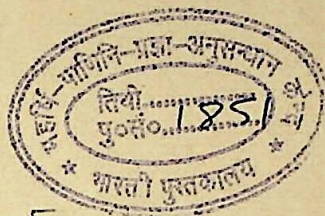 महर्षि-पाणिनि-प्रज्ञा-अनुसन्धान केन्द्र
तिथी..............
पु०सं०.1851
* भारती पुस्तकालय *